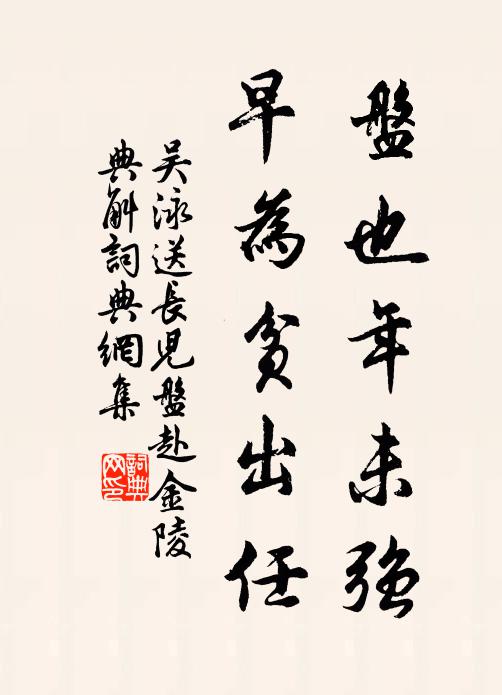 盤也年未強
早為貧出任
吳泳送長児盤赴金陵
典斛詞典網集
詞典網印